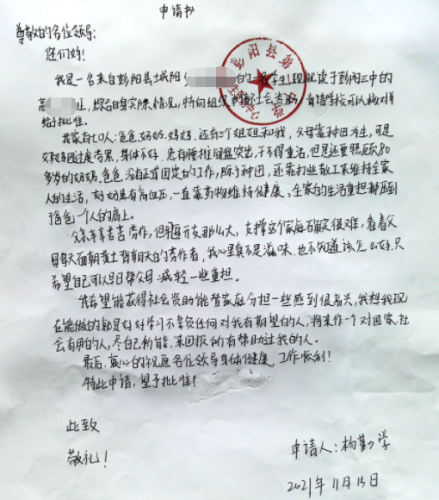 申请书
尊敬的各位领导：
您们好！
我是一名来自彭阳县城阳 的 学生，现就读于彭阳三中的
高 班，综合自身实际情况，特向组织申请社会资助，肯请学校可以核对并
给予批准。
我家有七口人：爸爸、奶奶、妈妈、还有三个姐姐和我，父母靠种田为生，可是
父亲 过度劳累，身体不好，患有腰椎间盘突出，干不得重活，但是还要照顾80
多岁的奶奶，爸爸没有正常固定的工作，除了种田，还靠打些散工来维持全家
人的生活，奶奶患有高血压，一直靠药物维持健康。全家的生活重担都压到
爸爸一个人的肩上。
父亲辛辛苦苦劳作，但 可支那么大，支撑这个家庭确实很难，看着父
母每天面朝黄土背朝天的劳作着，我心里真不是滋味，也不知道该怎么好，只
希望自己可以早日帮父母减轻一些重担。
我希望能获得社会资助能替家庭分担一些感到很高兴，我想我现
在能做的就是好好学习不辜负任何对我有期望的人，将来作一个对国家、社
会有用的人，尽自己所能，来回报所有帮助过我的人。
最后，衷心的祝愿各位领导身体健康，工作顺利！
特此申请，望予批准！
此致
敬礼！
申请人：杨勤学
2021年11月15日
彭阳县第